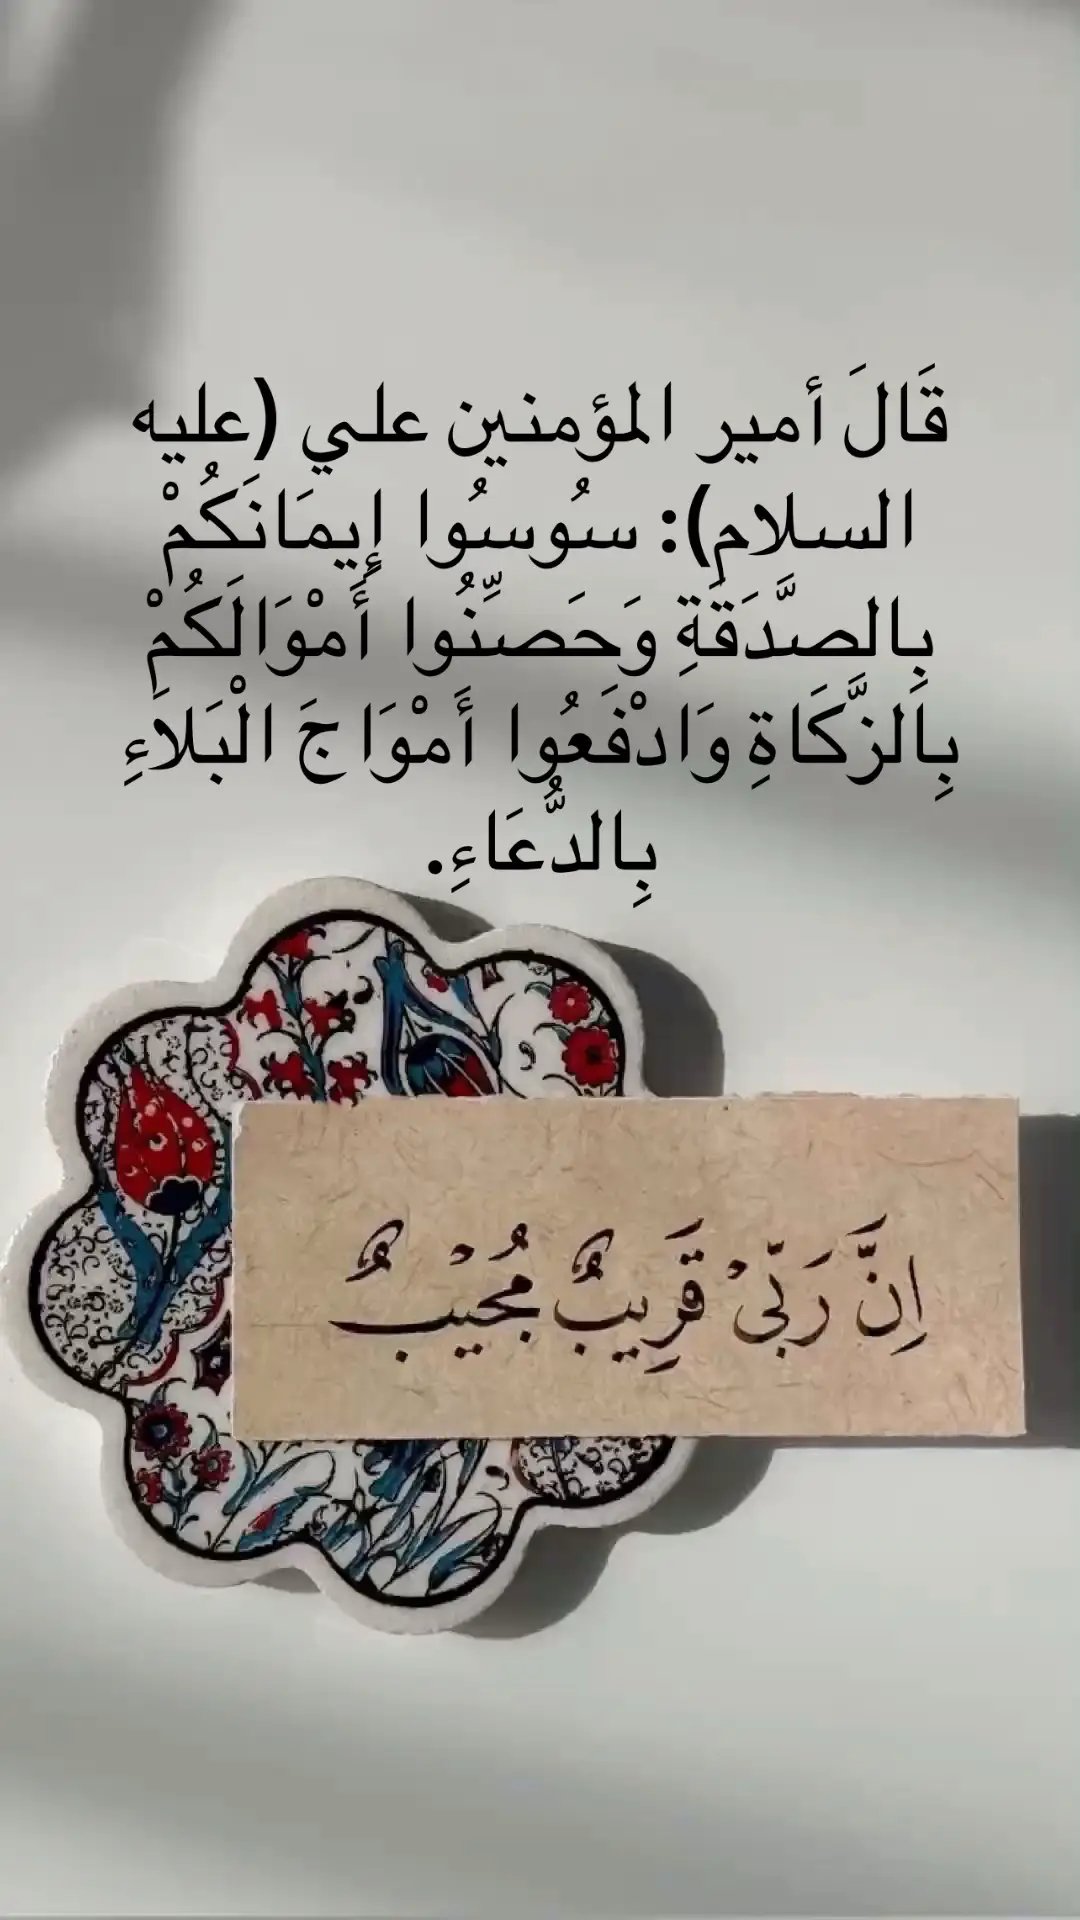 قَالَ أمير المؤمنين علي (عليه
السلام): سُوسُوا إِيمَانَكُمْ
بِالصَّدَقَةِ وَحَصِّنُوا أَمْوَالَكُمْ
بِالزَّكَاةِ وَادْفَعُوا أَمْوَاجَ الْبَلاَءِ
بِالدُّعَاءِ.
اِنَّ رَبّىْ قَرِيبٌ مُجْيبٌ